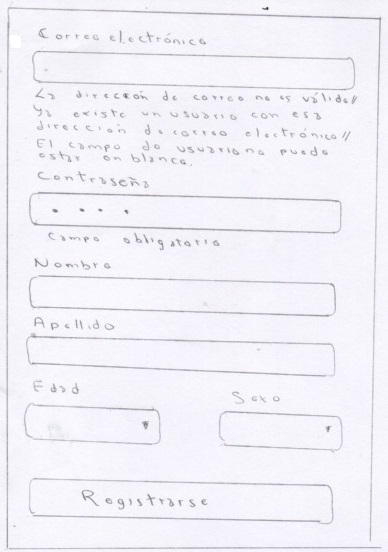 Correo electrónico
La dirección de correo no es válida//
Ya existe un usuario con esa
dirección de correo electrónico//
El campo de usuario no puede
estar en blanco.
Contraseña
Campo obligatorio
Nombre
Apellido
Edad
Sexo
Registrarse